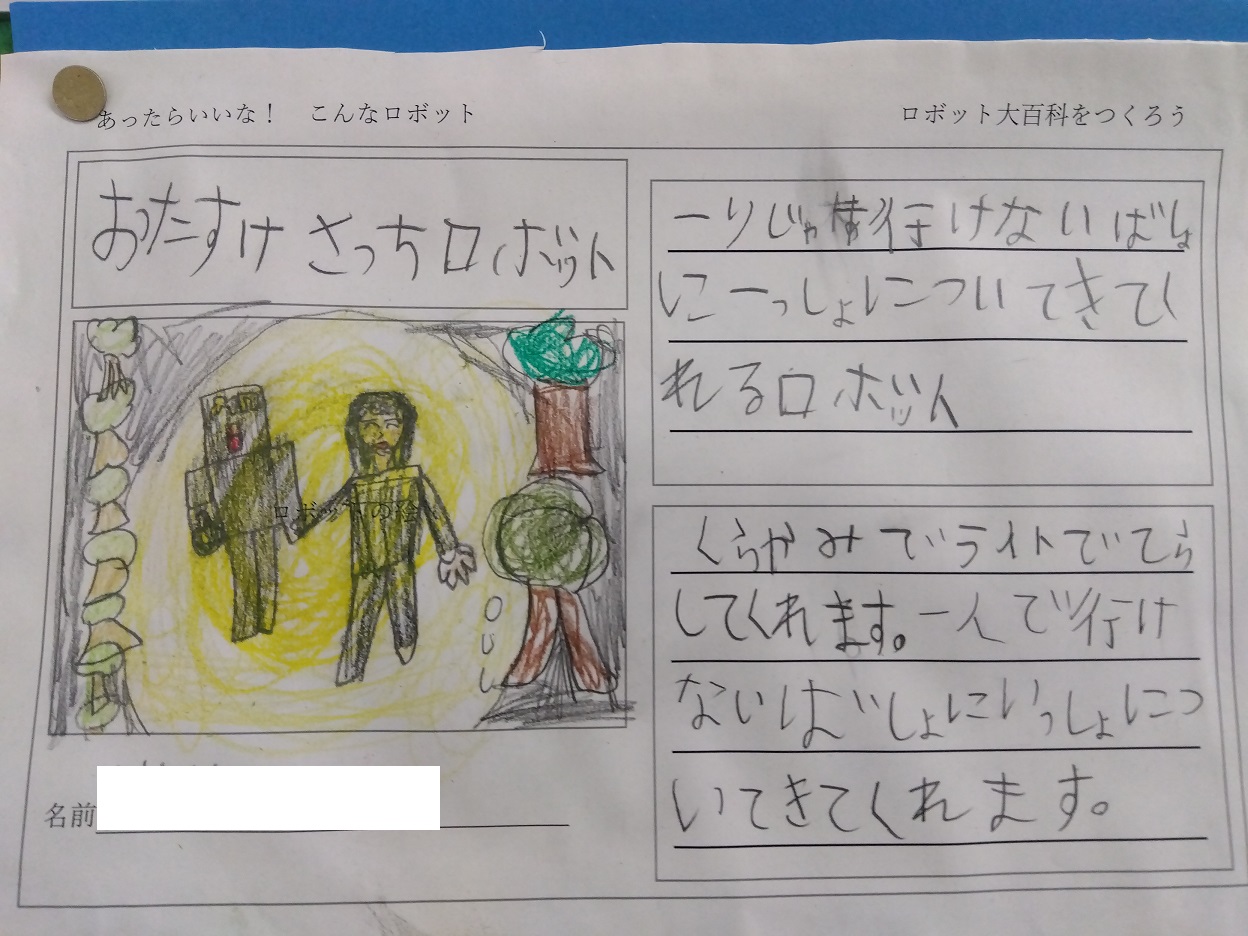 あったらいいな！　こんなロボット
ロボット大百科をつくろう
おたすけ さっちロボット
ロボットの絵
名前
一りじゃ行けないばしょ
に一っしょについてきてく
れるロボット
くらやみでライトでてら
してくれます。一人で行け
ないばしょにいっしょにつ
いてきてくれます。